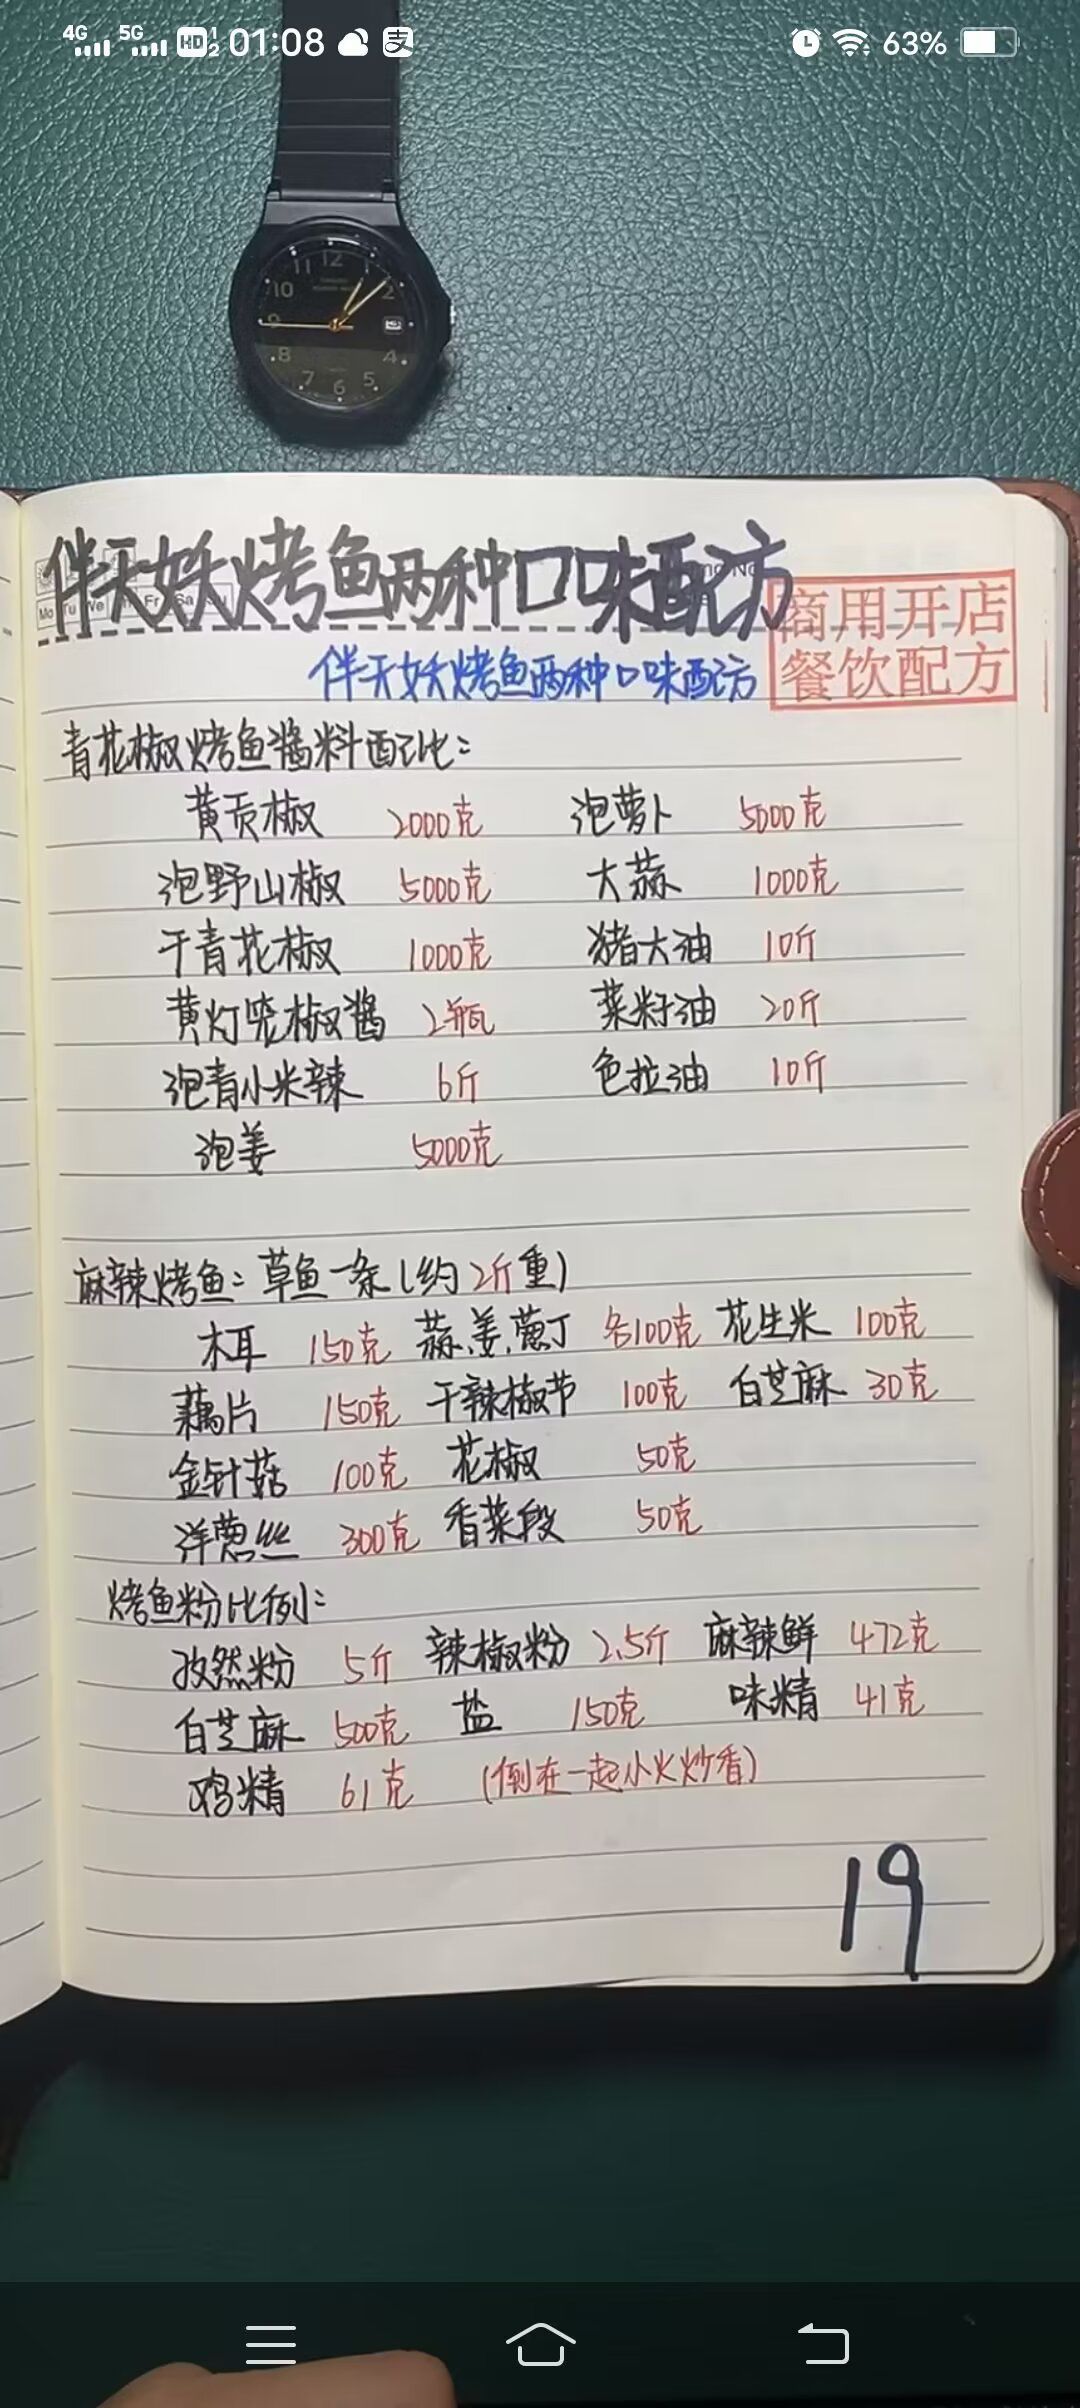 4G 5G HD 1 2 01:08 支 63%
11 12 1
10 2
9
8 4
7 6 5
伴天妖烤鱼两种口味配方
Mo Tu We Fr Sa
商用开店
餐饮配方
伴天妖烤鱼两种口味配方
青花椒烤鱼酱料配比:
黄贡椒 2000克 泡萝卜 5000克
泡野山椒 5000克 大蒜 1000克
干青花椒 1000克 猪大油 10斤
黄灯笼椒酱 2瓶 菜籽油 20斤
泡青小米辣 6斤 色拉油 10斤
泡姜 5000克
麻辣烤鱼:草鱼一条(约2斤重)
木耳 150克 蒜、姜、葱丁 各100克 花生米 100克
藕片 150克 干辣椒节 100克 白芝麻 30克
金针菇 100克 花椒 50克
洋葱丝 300克 香菜段 50克
烤鱼粉比例:
孜然粉 5斤 辣椒粉 2.5斤 麻辣鲜 472克
白芝麻 500克 盐 150克 味精 41克
鸡精 61克 (倒在一起小火炒香)
19